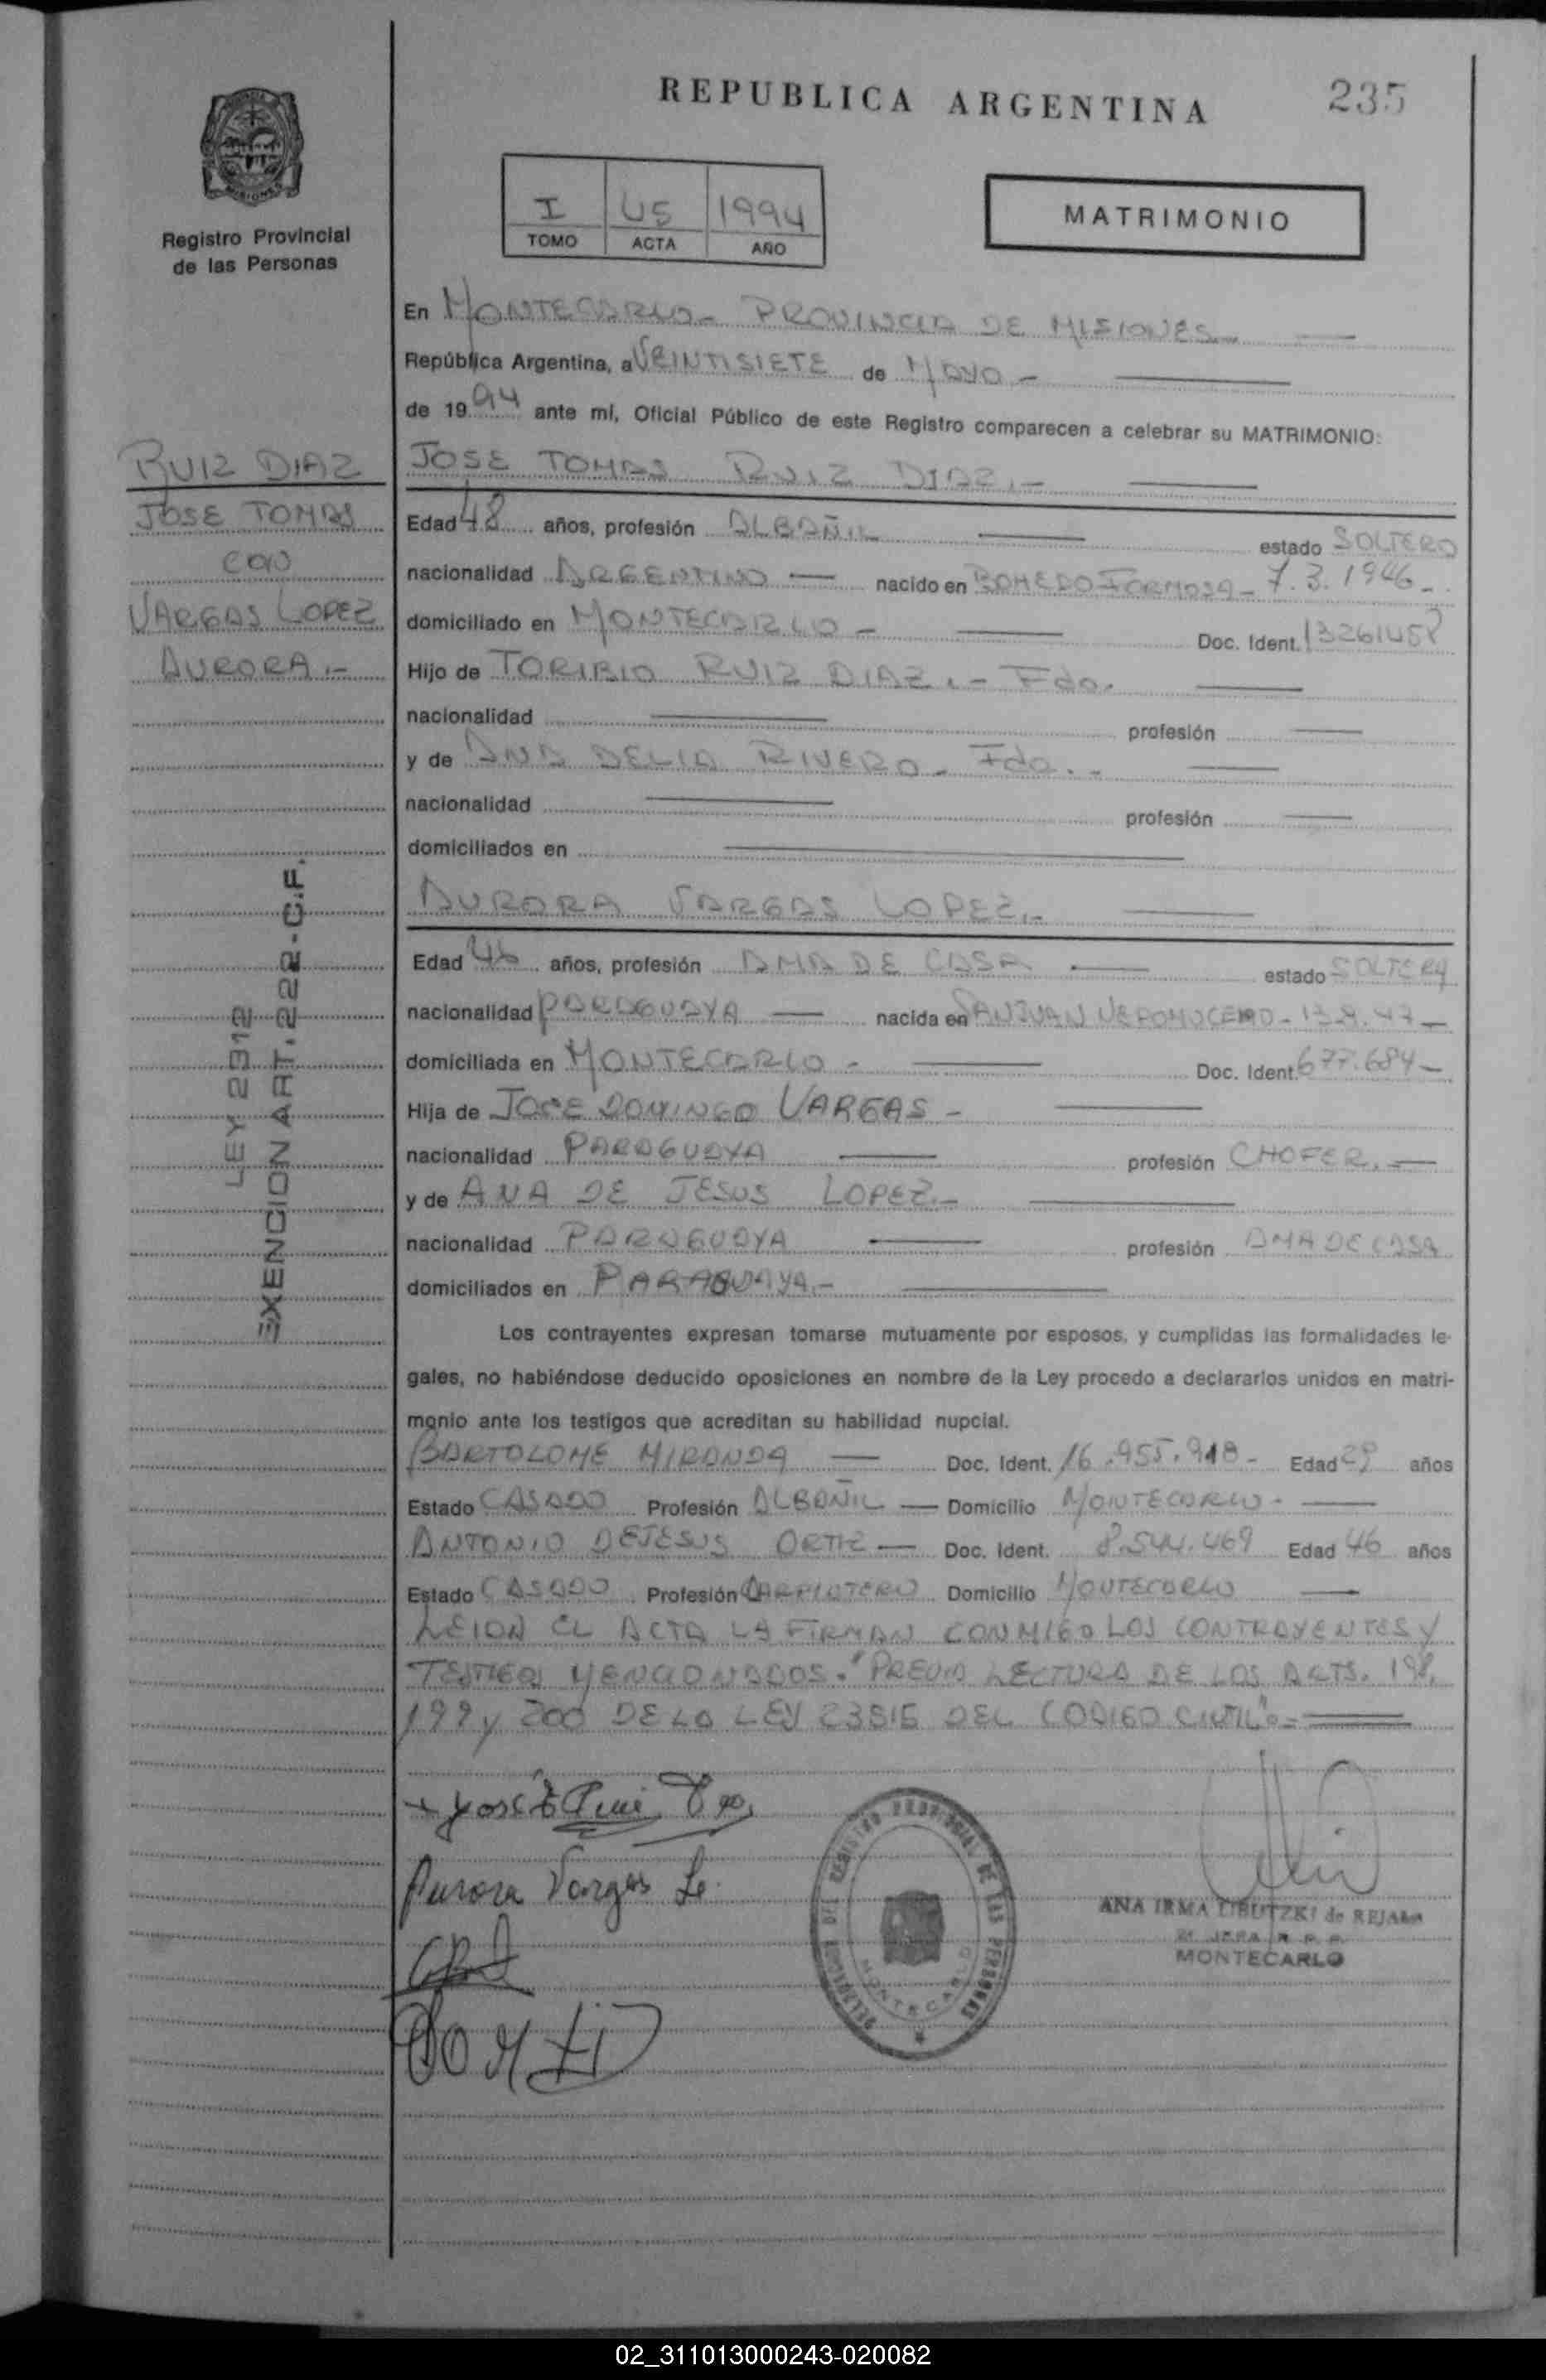 REPUBLICA ARGENTINA
235
Registro Provincial
de las Personas
I 45 1994
TOMO ACTA AÑO
MATRIMONIO
En MONTECARLO - PROVINCIA DE MISIONES
República Argentina, a VEINTISIETE de MAYO -
de 1994 ante mi, Oficial Público de este Registro comparecen a celebrar su MATRIMONIO:
RUIZ DIAZ
JOSE TOMAS
CON
VARGAS LOPEZ
AURORA.-
LEY 2312
EXENCION ART. 222 - C.F.
JOSE TOMAS RUIZ DIAZ.-
Edad 48 años, profesión ALBAÑIL estado SOLTERO
nacionalidad ARGENTINO nacido en FORMOSA - 7.3.1946 -
domiciliado en MONTECARLO - Doc. Ident.
Hijo de TORIBIO RUIZ DIAZ.- Fdo.
nacionalidad profesión
y de ANA DELIA RIVERO - Fda.-
nacionalidad profesión
domiciliados en
AURORA VARGAS LOPEZ.-
Edad 46 años, profesión AMA DE CASA estado SOLTERA
nacionalidad PARAGUAYA nacida en SAN JUAN NEPOMUCENO -
domiciliada en MONTECARLO - Doc. Ident. 677.684 -
Hija de JOSE DOMINGO VARGAS -
nacionalidad PARAGUAYA profesión CHOFER.-
y de ANA DE JESUS LOPEZ.-
nacionalidad PARAGUAYA profesión AMA DE CASA
domiciliados en PARAGUAYA.-
Los contrayentes expresan tomarse mutuamente por esposos, y cumplidas las formalidades le-
gales, no habiéndose deducido oposiciones en nombre de la Ley procedo a declararlos unidos en matri-
monio ante los testigos que acreditan su habilidad nupcial.
BARTOLOME MIRANDA Doc. Ident. 16.955.918 - Edad 29 años
Estado CASADO Profesión ALBAÑIL Domicilio MONTECARLO -
ANTONIO DEJESUS ORTIZ Doc. Ident. 8.544.469 Edad 46 años
Estado CASADO Profesión CARPINTERO Domicilio MONTECARLO
LEIDA EL ACTA LA FIRMAN CONMIGO LOS CONTRAYENTES Y
TESTIGOS MENCIONADOS. "PREVIA LECTURA DE LOS ARTS. 198,
199 y 200 DE LA LEY 23515 DEL CODIGO CIVIL".=
Aurora Vargas Lo.
DELEGACION DEL REGISTRO PROVINCIAL DE LAS PERSONAS
MONTECARLO
ANA IRMA de REJALA
MONTECARLO
02_311013000243-020082